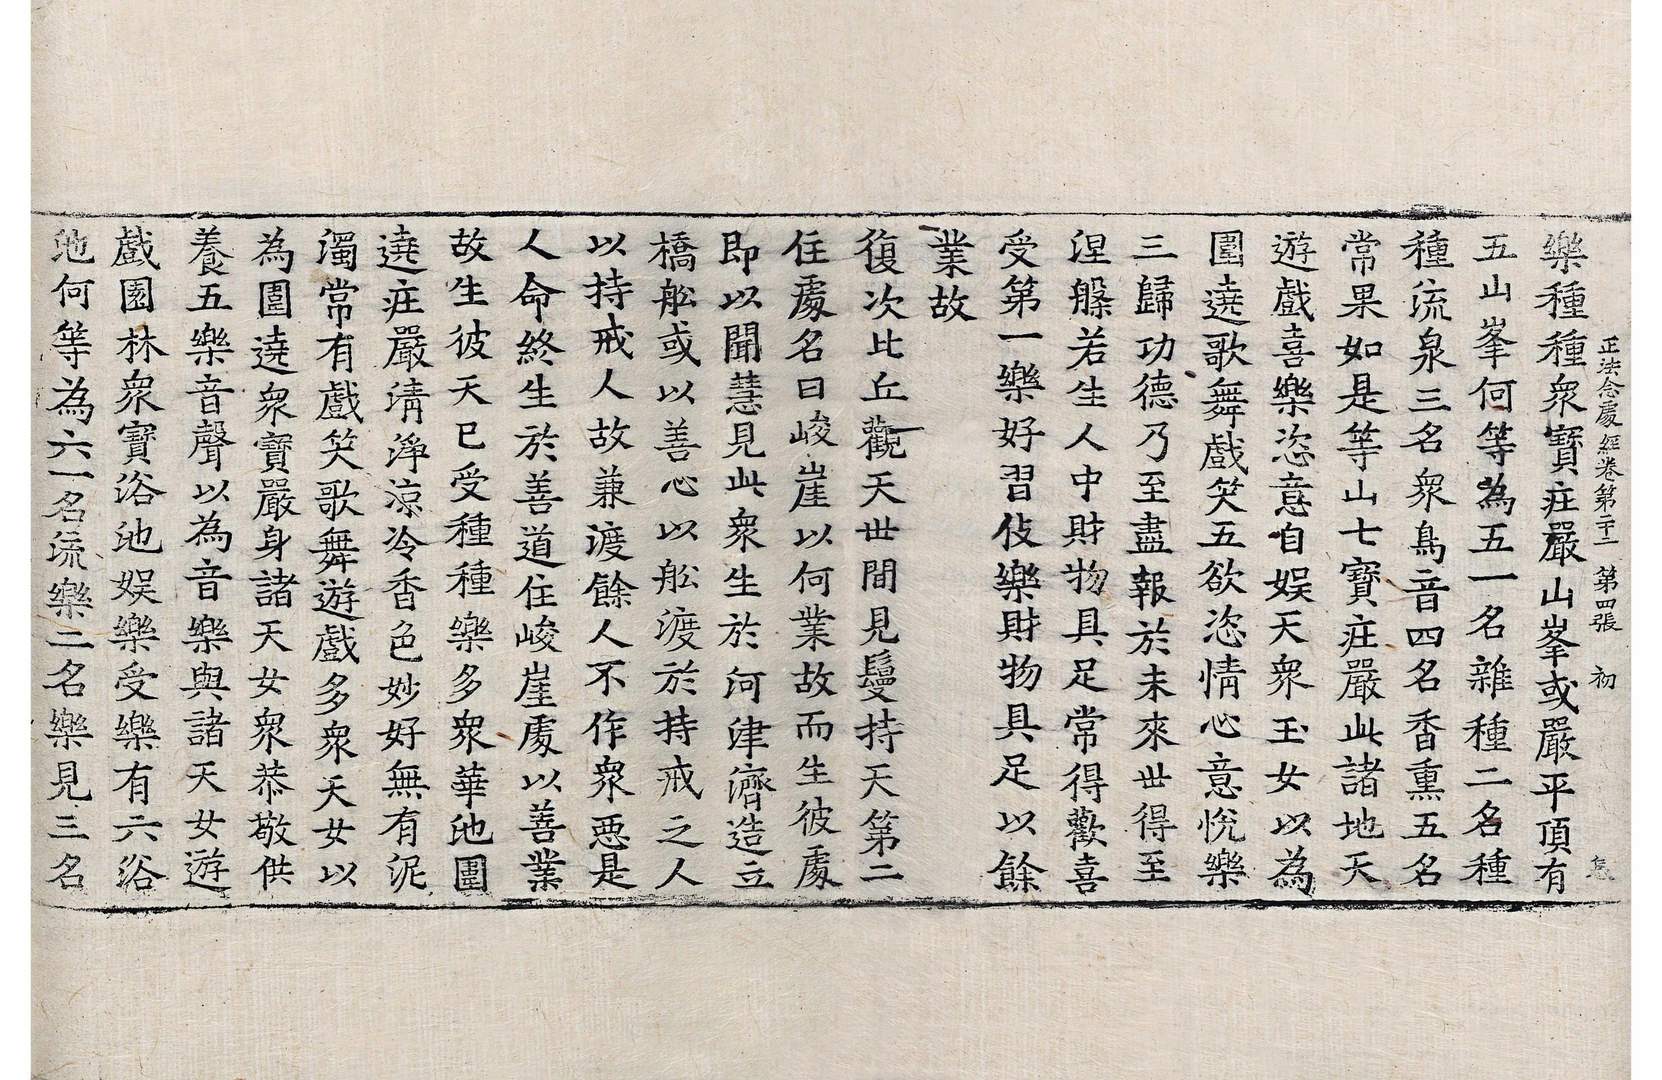 正法念處經卷第二十二　第四張　初
樂種種衆寶疘嚴山峯或嚴平頂有
五山峯何等為五一名雜種二名種
種流泉三名衆鳥音四名香熏五名
常果如是等山七寶疘嚴此諸地天
遊戲喜樂恣意自娛天衆玉女以為
圍遶歌舞戲笑五欲恣情心意悅樂
三歸功德乃至盡報於未來世得至
涅槃若生人中財物具足常得歡喜
受第一樂好習伎樂財物具足以餘
業故
復次比丘觀天世間見鬘持天第二
住處名曰峻崖以何業故而生彼處
即以聞慧見此衆生於河津濟造立
橋舩或以善心以舩渡於持戒之人
以持戒人故兼渡餘人不作衆惡是
人命終生於善道住峻崖處以善業
故生彼天已受種種樂多衆華池圍
遶疘嚴淸淨涼冷香色妙好無有泥
濁常有戲笑歌舞遊戲多衆天女以
為圍遶衆寶嚴身諸天女衆恭敬供
養五樂音聲以為音樂與諸天女遊
戲園林衆寶浴池娛樂受樂有六浴
池何等為六一名流樂二名樂見三名